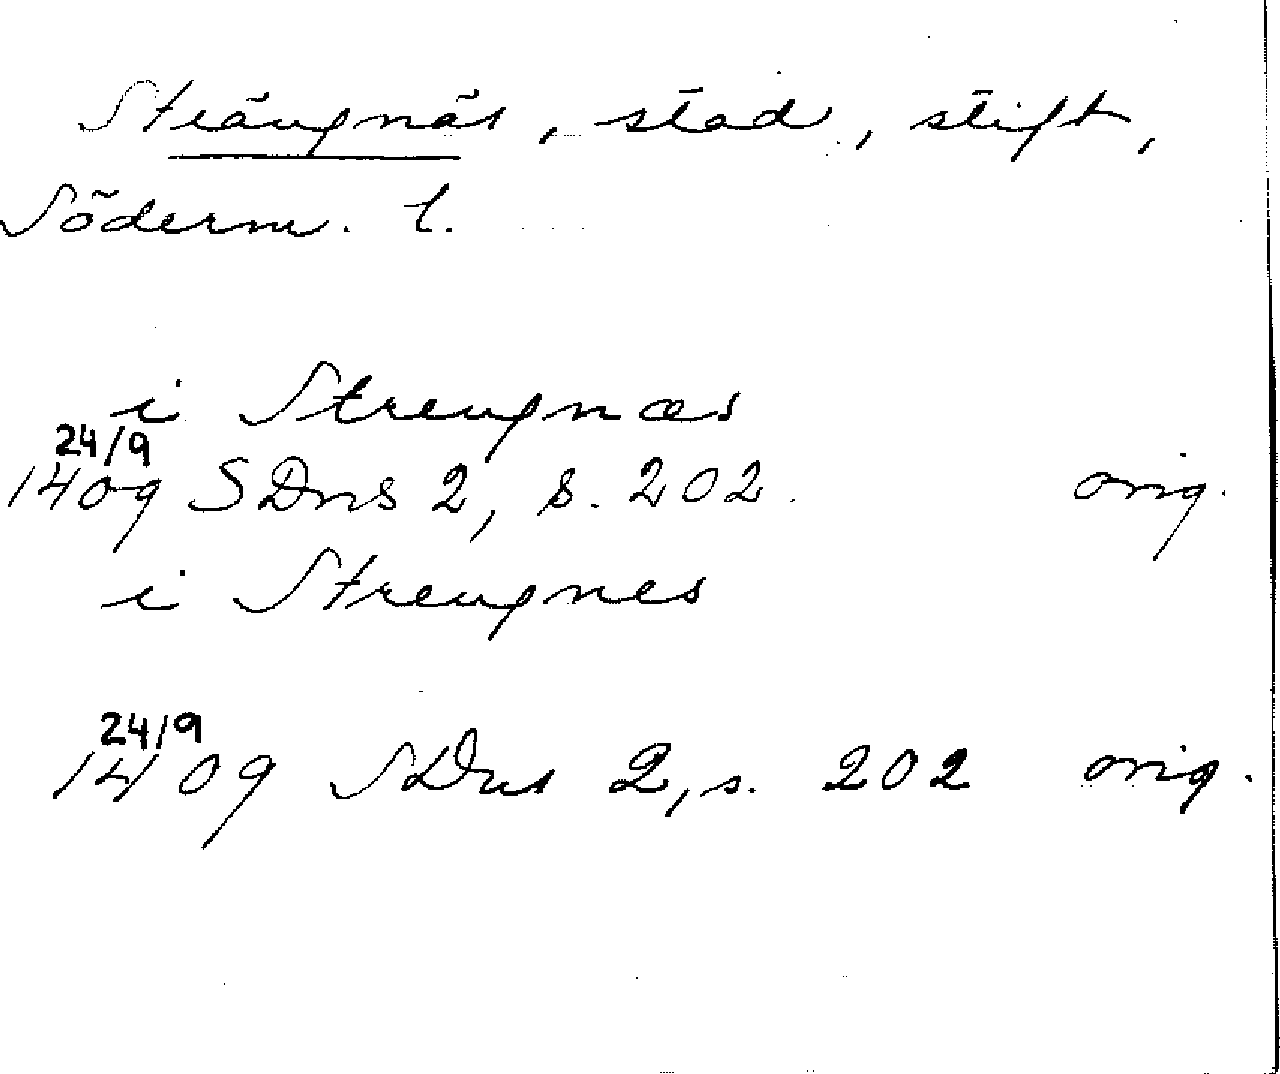 Strängnäs, stad, stift,
Söderm. l.
i Strengnæs
24/9
1409 SDns 2, s. 202. orig.
i Strengnes
24/9
1409 SDns 2, s. 202 orig.